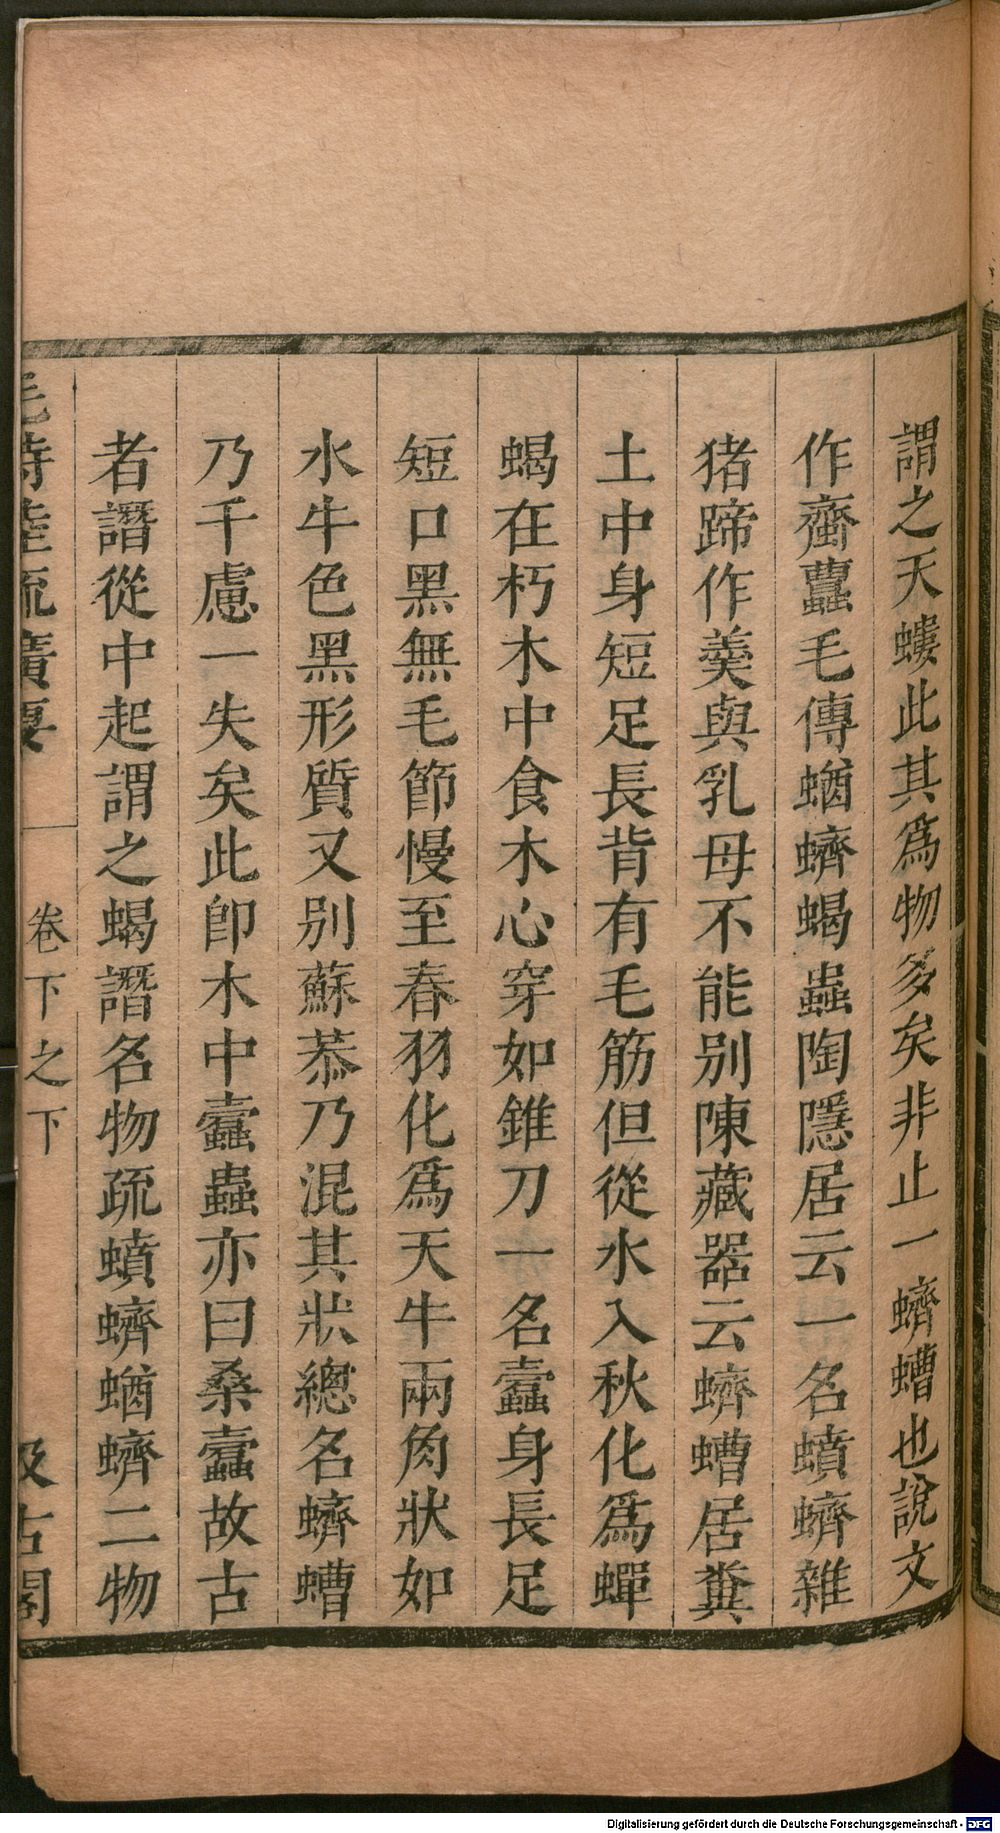 謂之天螻此其爲物多矣非止一蠐螬也說文
作齏𧓉毛傳蝤蠐蝎蟲陶隱居云一名蟦蠐雜
猪蹄作羮與乳母不能别陳藏器云蠐螬居糞
土中身短足長背有毛筋但從水入秋化爲蟬
蝎在朽木中食木心穿如錐刀一名蠹身長足
短口黑無毛節慢至春羽化爲天牛兩角狀如
水牛色黑形質又别蘇恭乃混其狀總名蠐螬
乃千慮一失矣此卽木中蠹蟲亦曰桑蠹故古
者譖從中起謂之蝎譖名物疏蟦蠐蝤蠐二物
毛詩陸疏廣要 卷下之下 汲古閣
Digitalisierung gefördert durch die Deutsche Forschungsgemeinschaft - DFG